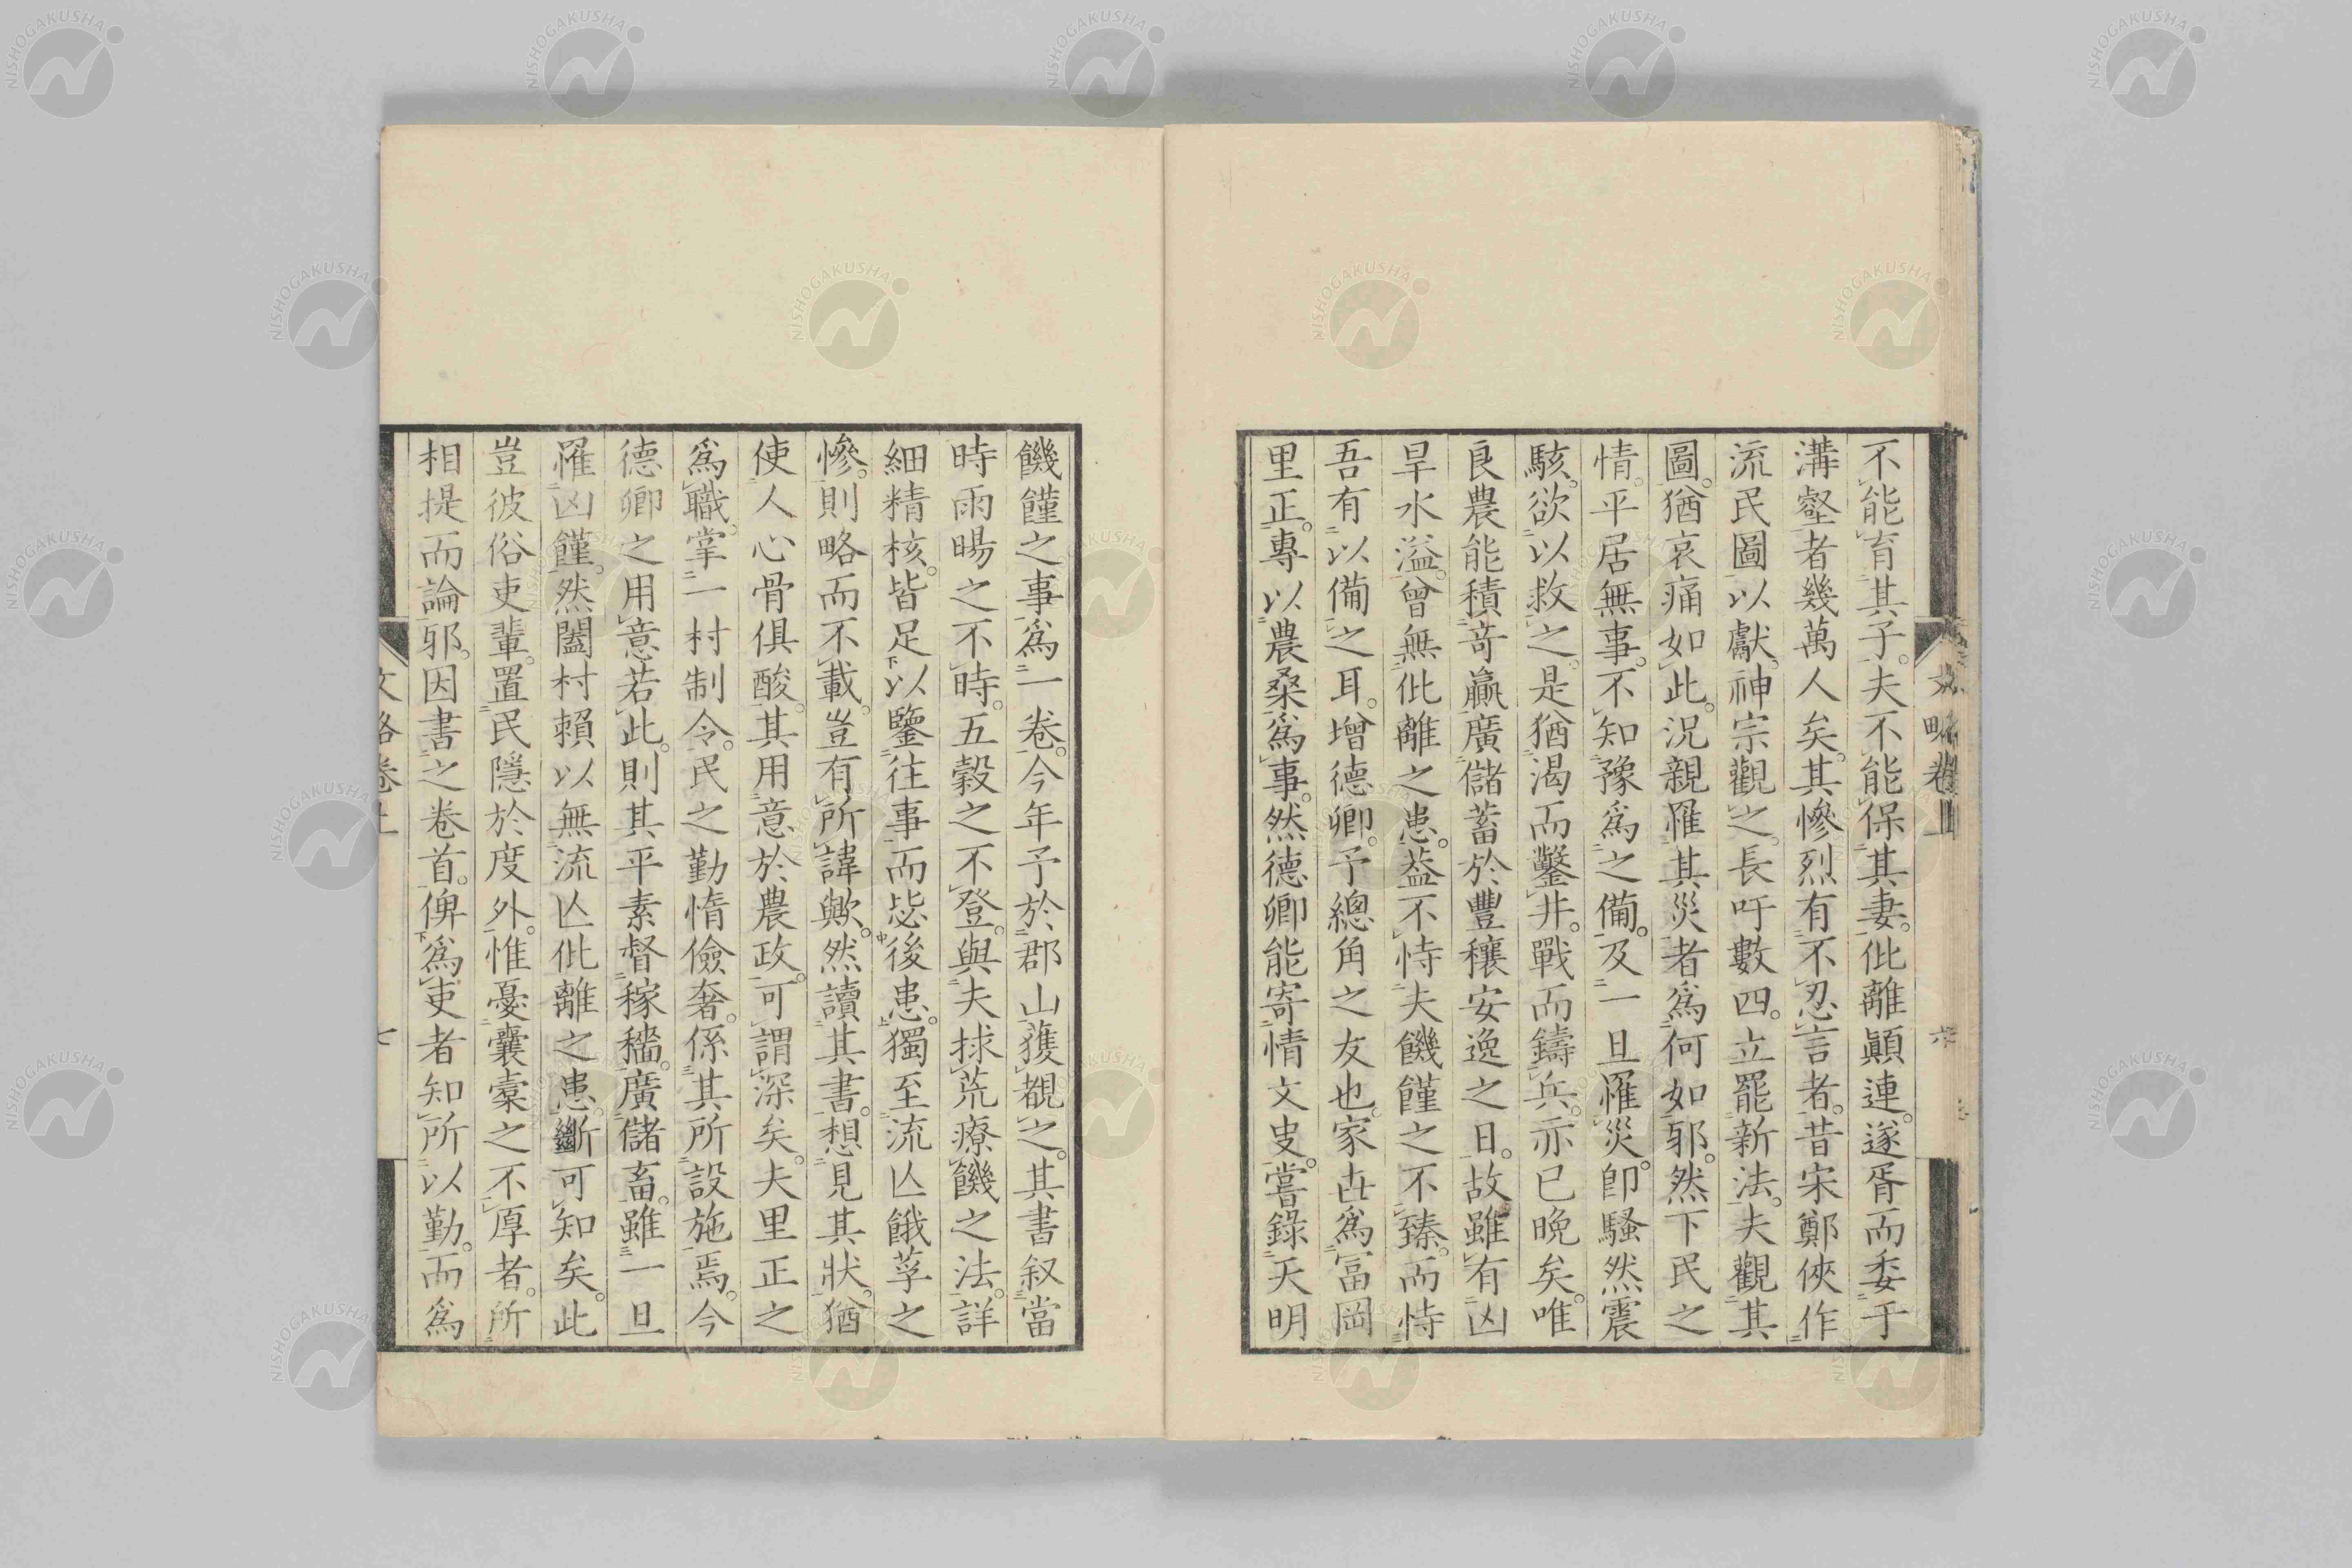 不能育其子。夫不能保其妻。仳離顚連。遂胥而委于
溝壑者幾萬人矣。其慘烈有不忍言者。昔宋鄭俠作
流民圖以獻。神宗觀之。長吁數四。立罷新法。夫觀其
圖。猶哀痛如此。況親罹其災者爲何如邪。然下民之
情。平居無事。不知豫爲之備。及一旦罹災。卽騷然震
駭。欲以救之。是猶渴而鑿井。戰而鑄兵。亦已晩矣。唯
良農能積奇贏。廣儲蓄於豐穰安逸之日。故雖有凶
旱水溢。曾無仳離之患。葢不恃夫饑饉之不臻。而恃
吾有以備之耳。増德卿。予總角之友也。家世爲冨岡
里正。專以農桑爲事。然德卿能寄情文史。嘗錄天明
饑饉之事。爲一卷。今年予於郡山獲覩之。其書叙當
時雨暘之不時。五穀之不登。與夫捄荒療饑之法。詳
細精核。皆足以鑒往事而毖後患。獨至流亾餓莩之
慘。則略而不載。豈有所諱歟。然讀其書。想見其狀。猶
使人心骨俱酸。其用意於農政。可謂深矣。夫里正之
爲職。掌一村制令。民之勤惰儉奢。係其所設施焉。今
德卿之用意若此。則其平素督稼穡。廣儲畜。雖一旦
罹凶饉。然闔村賴以無流亾仳離之患。斷可知矣。此
豈彼俗吏輩。置民隱於度外。惟憂囊槖之不厚者。所
相提而論邪。因書之卷首。俾爲吏者知所以勤。而爲
文略卷上
六
文略卷上
七
NISHOGAKUSHA